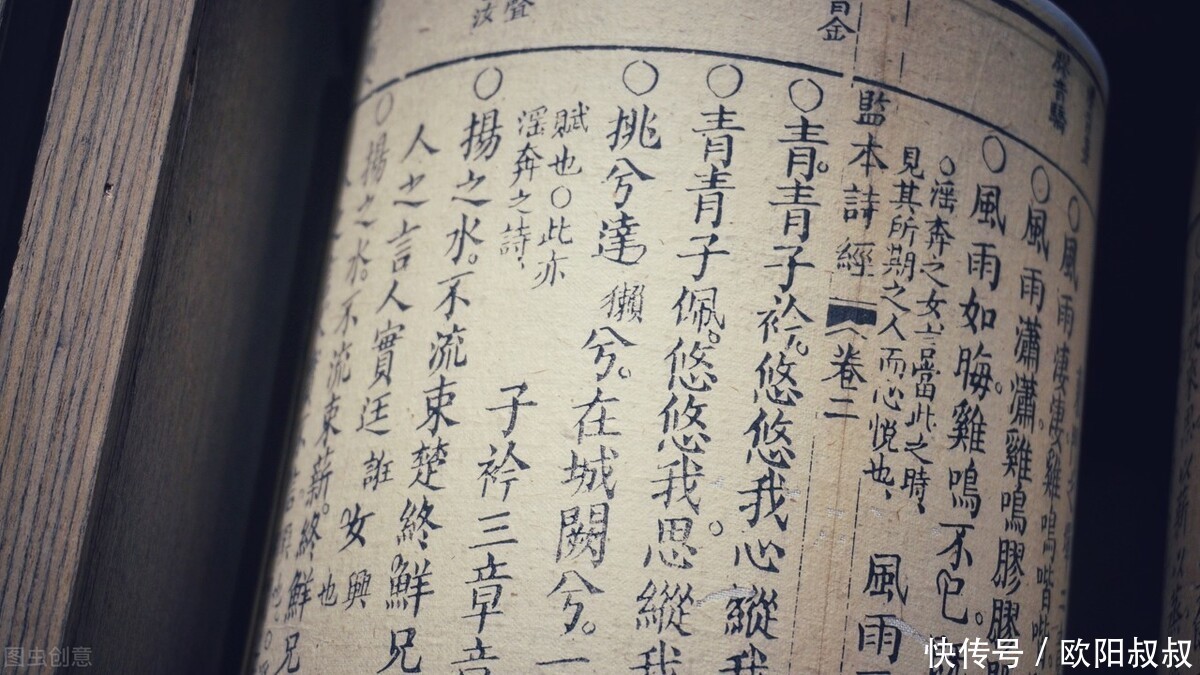 ○風雨淒淒雞鳴喈喈
○風雨瀟瀟雞鳴膠膠
○風雨如晦。雞鳴不已。
○滛奔之女言當此之時、
見其所期之人而心悅也、
風雨
監本詩經 卷二
○青。青子衿。悠悠我心縱我
○青青子佩。悠悠我思。縱我
○挑兮達獺兮。在城闕兮。一
賦也○此亦
滛奔之詩、
子衿三章章
○揚之水。不流束楚終鮮兄
人之言人實迋誑女興也
○揚之水。不流束薪。終鮮兄
图虫创意
快传号 / 欧阳叔叔